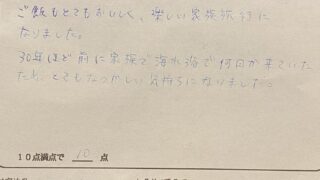 ご飯もとてもおいしく、楽しい家族旅行に
なりました。
30年ほど前に家族で海水浴で何回か来ていた
ため、とてもなつかしい気持ちになりました。
10点満点で 10 点